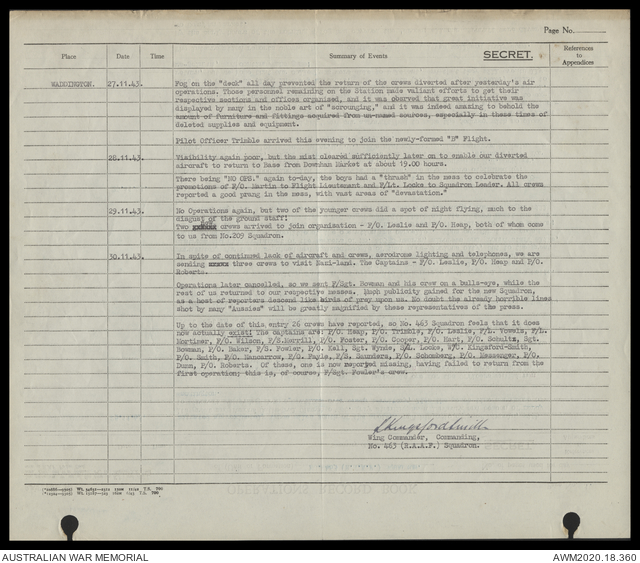 Page No.
Place Date Time Summary of Events SECRET. References to Appendices
WADDINGTON. 27.11.43. Fog on the "deck" all day prevented the return of the crews diverted after yesterday's air
operations. Those personnel remaining on the Station made valiant efforts to get their
respective sections and offices organised, and it was observed that great initiative was
displayed by many in the noble art of "scrounging," and it was indeed amazing to behold the
amount of furniture and fittings acquired from un-named sources, especially in these times of
depleted supplies and equipment.
Pilot Officer Trimble arrived this evening to join the newly-formed "B" Flight.
28.11.43. Visibility again poor, but the mist cleared sufficiently later on to enable our diverted
aircraft to return to Base from Downham Market at about 19.00 hours.
There being "NO OPS." again to-day, the boys had a "thrash" in the mess to celebrate the
promotions of F/O. Martin to Flight Lieutenant and F/Lt. Locke to Squadron Leader. All crews
reported a good prang in the mess, with vast areas of "devastation."
29.11.43. No Operations again, but two of the younger crews did a spot of night flying, much to the
disgust of the ground staff!
Two crews arrived to join organisation - F/O. Leslie and P/O. Heap, both of whom come
to us from No.209 Squadron.
30.11.43. In spite of continued lack of aircraft and crews, aerodrome lighting and telephones, we are
sending three crews to visit Nazi-land. The Captains - F/O. Leslie, P/O. Heap and F/O.
Roberts.
Operations later cancelled, so we sent F/Sgt. Bowman and his crew on a bulls-eye, while the
rest of us returned to our respective messes. Much publicity gained for the new Squadron,
as a host of reporters descend like birds of prey upon us. No doubt the already horrible lines
shot by many "Aussies" will be greatly magnified by these representatives of the press.
Up to the date of this entry 26 crews have reported, so No. 463 Squadron feels that it does
now actually exist! The captains are: P/O. Heap, P/O. Trimble, F/O. Leslie, F/L. Vowels, F/L.
Mortimer, P/O. Wilson, F/S.Merrill, P/O. Foster, P/O. Cooper, P/O. Hart, P/O. Schultz, Sgt.
Bowman, P/O. Baker, F/S. Fowler, P/O. Kell, Sgt. Wynde, S/L. Locke, W/C. Kingsford-Smith,
P/O. Smith, P/O. P/O. Fayle, F/S. Saunders, P/O. Schomberg, P/O. Messenger, P/O.
Dunn, F/O. Roberts. Of these, one is now reported missing, having failed to return from the
first operation; this is, of course, F/Sgt. Fowler's crew.
Kingsford Smith
Wing Commander, Commanding,
No. 463 (R.A.A.F.) Squadron.
OPERATIONS RECORD BOOK
AUSTRALIAN WAR MEMORIAL AWM2020.18.360